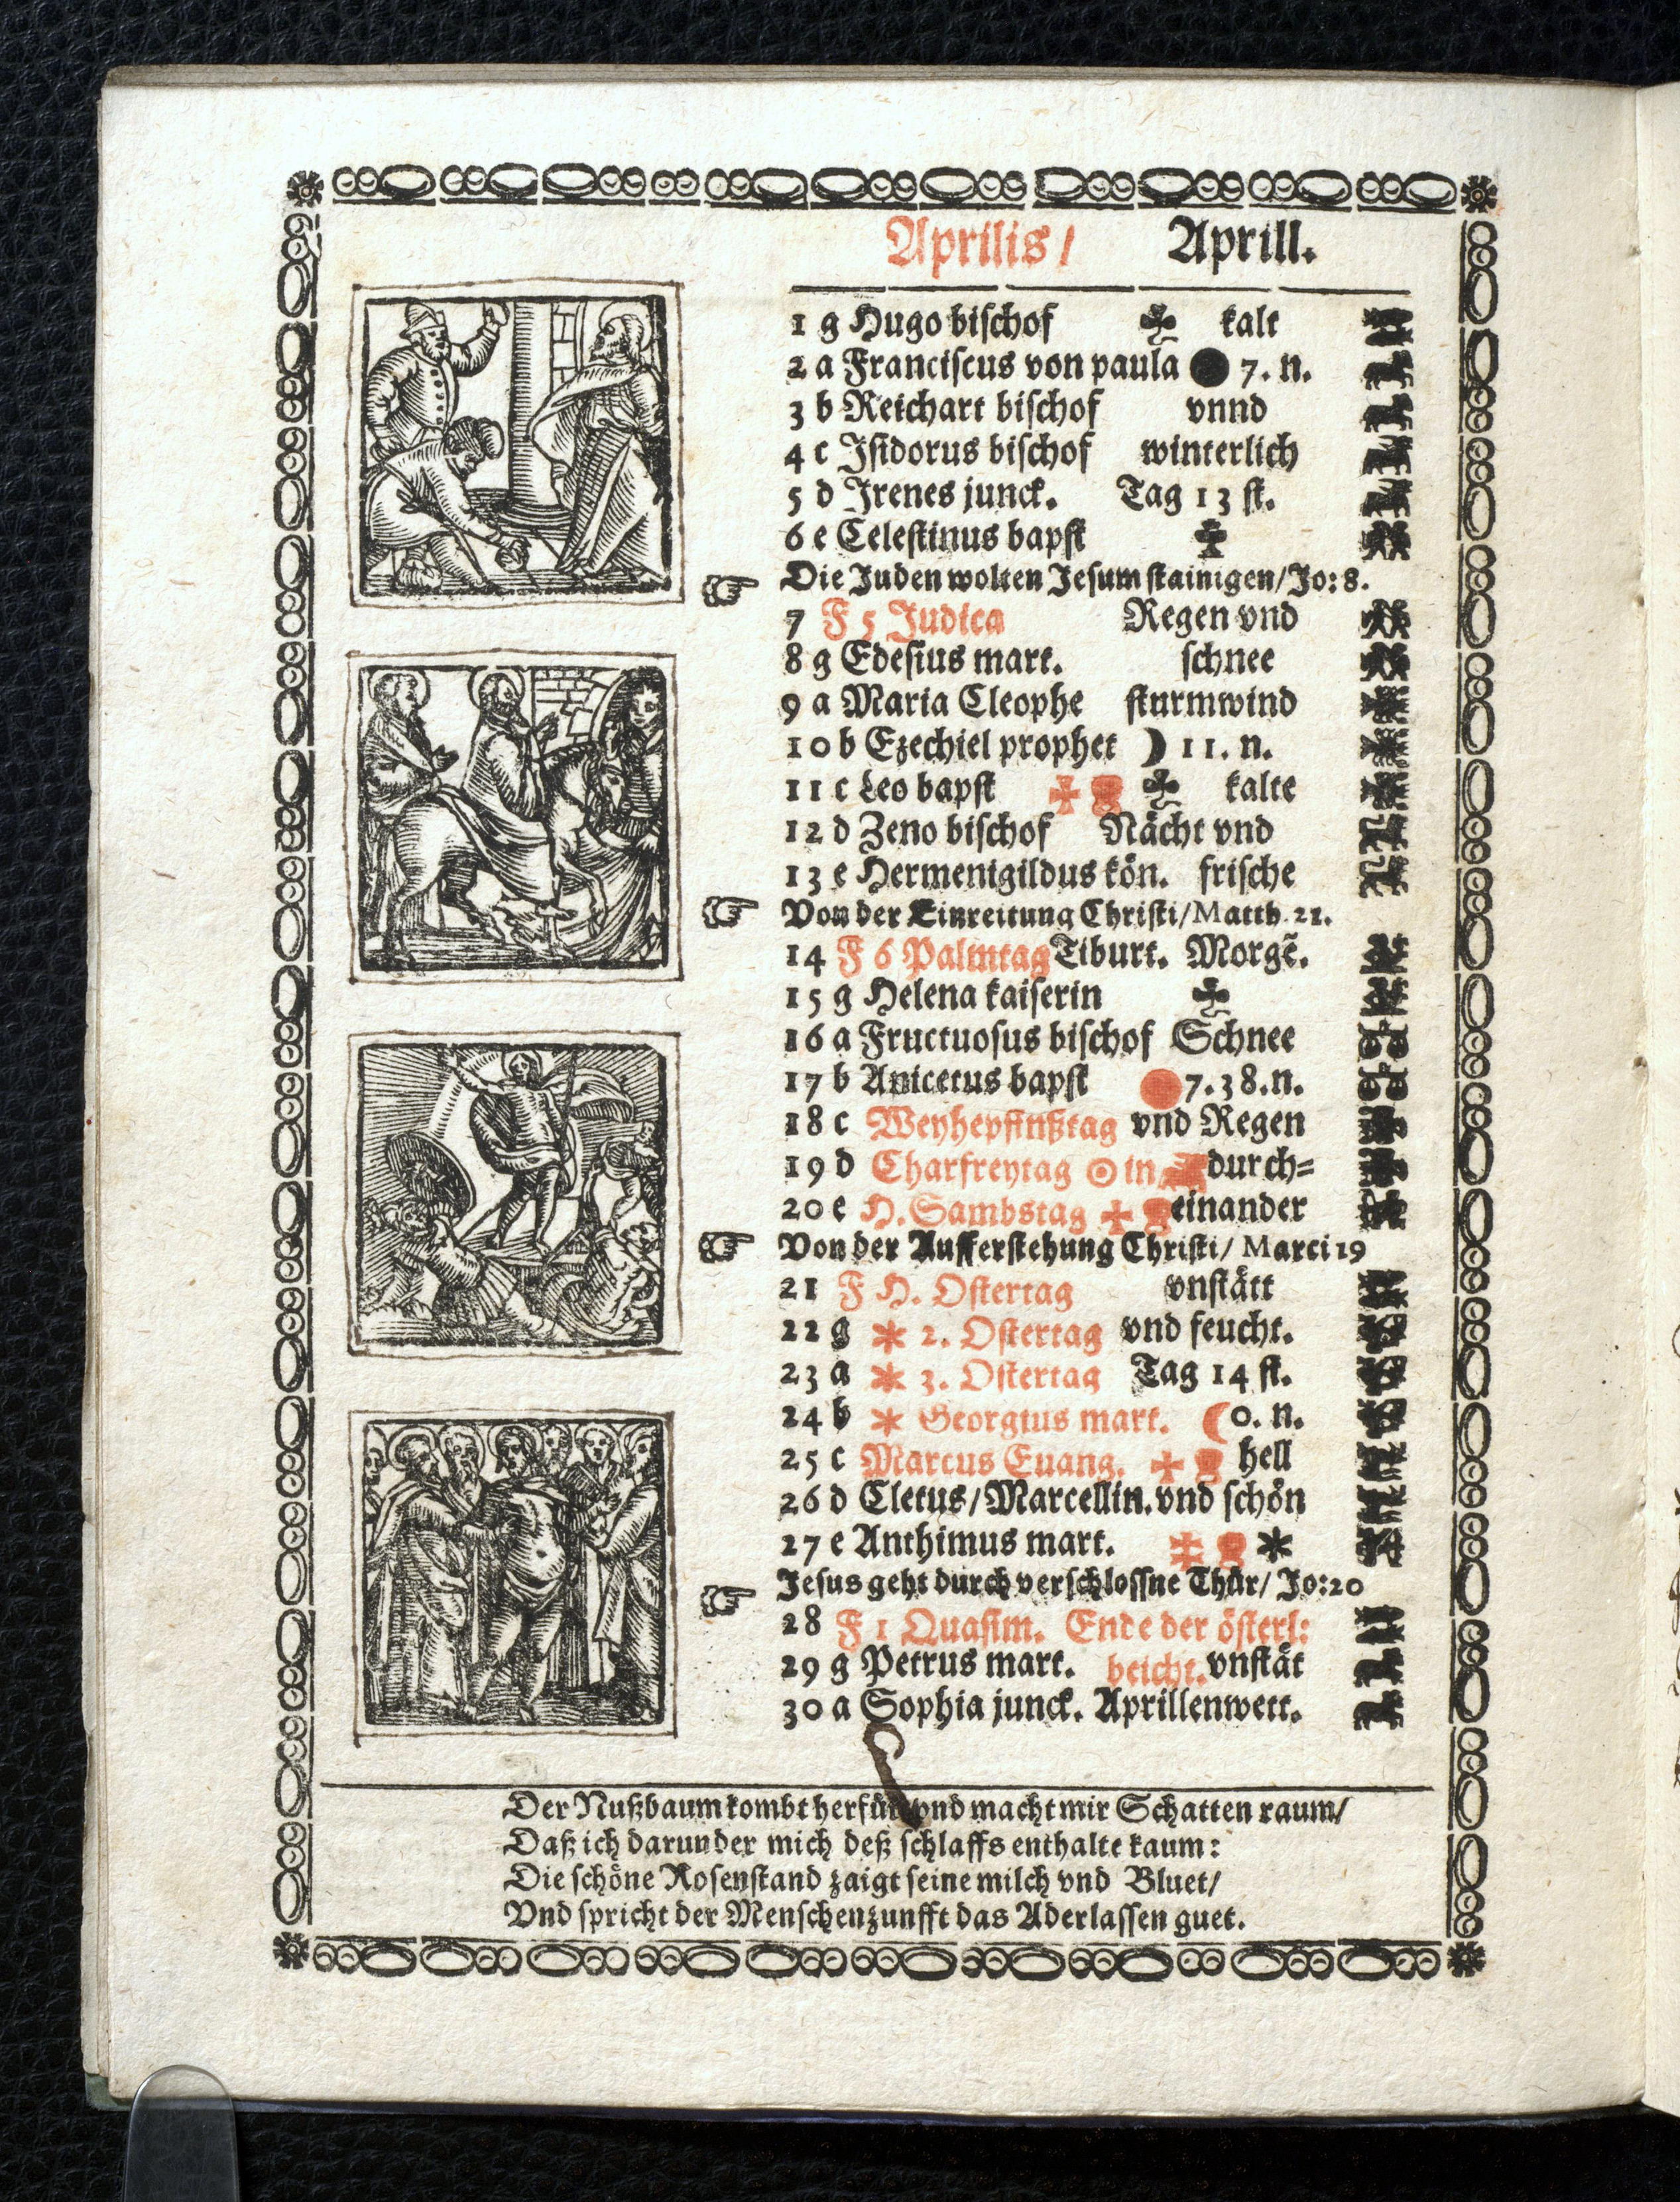 Aprilis/ Aprill.
1 g Hugo bischof kalt
2 a Franciscus von paula 7. n.
3 b Reichart bischof vnnd
4 c Isidorus bischof winterlich
5 d Irenes junck. Tag 13 st.
6 e Celestinus bapst
Die Juden wolten Jesum stainigen/Jo: 8.
7 F 5 Judica Regen vnd
8 g Edesius mart. schnee
9 a Maria Cleophe sturmwind
10 b Ezechiel prophet ☽ 11. n.
11 c Leo bapst kalte
12 d Zeno bischof Nächt vnd
13 e Hermenigildus kön. frische
Von der Einreitung Christi/Matth. 21.
14 F 6 Palmtag Tiburt. Morgē.
15 g Helena kaiserin
16 a Fructuosus bischof Schnee
17 b Anicetus bapst 7. 38. n.
18 c Weyhepfintztag vnd Regen
19 d Charfreytag ☉ in durch=
20 e H. Sambstag einander
Von der Aufferstehung Christi/ Marci 19
21 F H. Ostertag vnstätt
22 g * 2. Ostertag vnd feucht.
23 a * 3. Ostertag Tag 14 st.
24 b * Georgius mart. ☾ 0. n.
25 c Marcus Euang. hell
26 d Cletus/Marcellin. vnd schön
27 e Anthimus mart. *
Jesus geht durch verschlossne Thür/ Jo: 20
28 F 1 Quasim. Ende der österl:
29 g Petrus mart. beicht. vnstät
30 a Sophia junck. Aprillenwett.
Der Nußbaum kombt herfür vnd macht mir Schatten raum/
Daß ich darunder mich deß schlaffs enthalte kaum:
Die schöne Rosenstand zaigt seine milch vnd Bluet/
Vnd spricht der Menschenzunfft das Aderlassen guet.